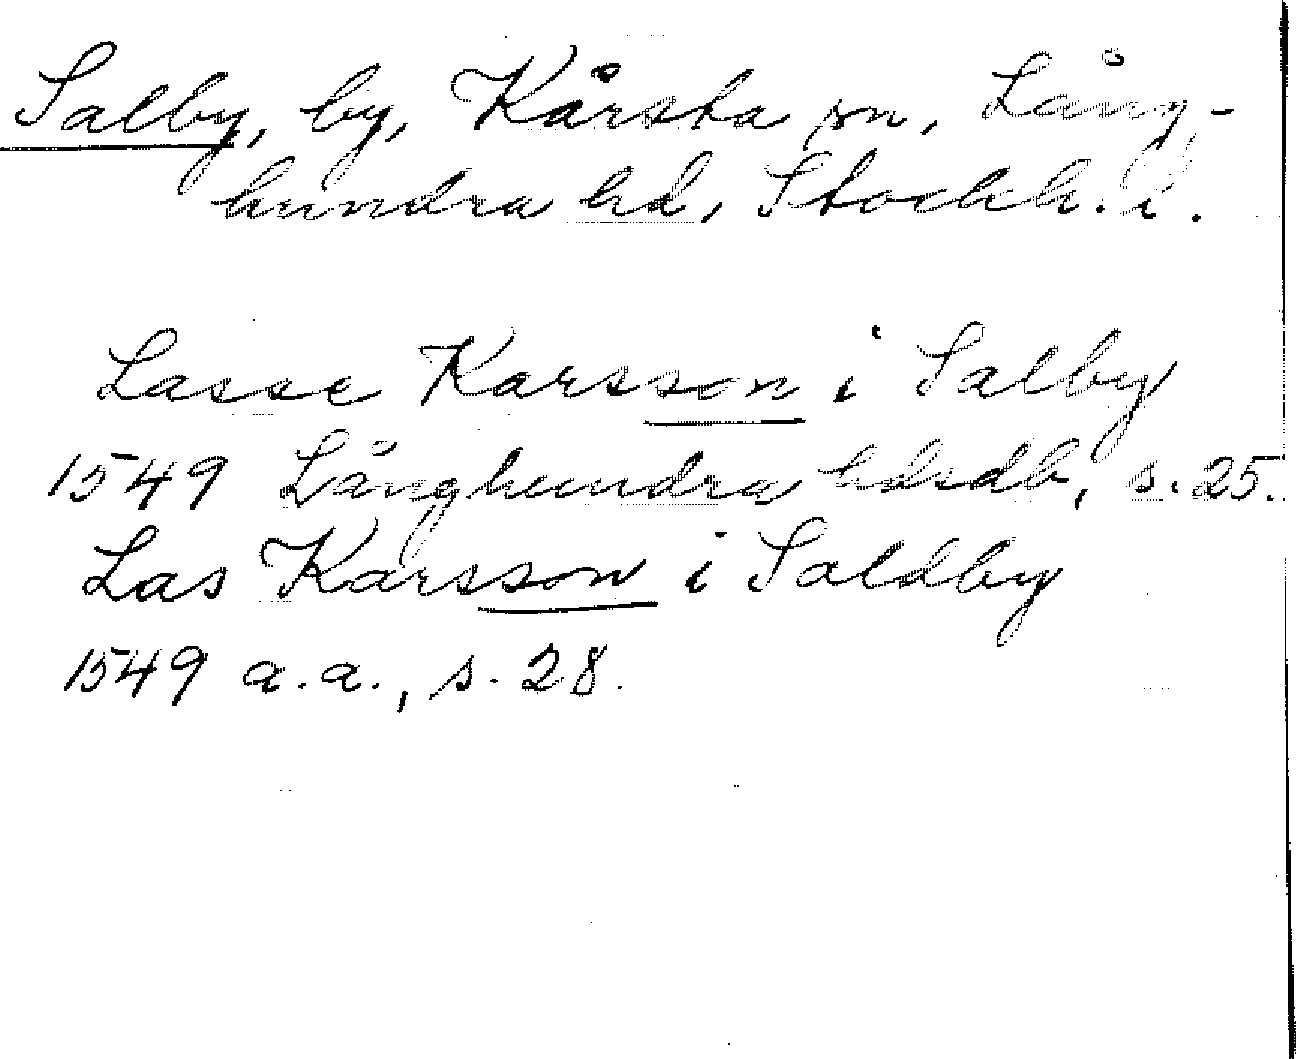 Salby, by, Kårsta sn, Lång-
hundra hd, Stockh. l.
Lasse Karsson i Salby
1549 Långhundra hdsdb, s. 25.
Las Karsson i Saldby
1549 a.a., s. 28.